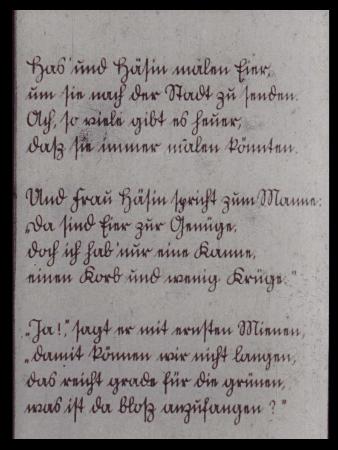 Has' und Häsin malen Eier,
um sie nach der Stadt zu senden.
Ach, so viele gibt es heuer,
daß sie immer malen könnten.
Und Frau Häsin spricht zum Manne:
„Da sind Eier zur Genüge,
doch ich hab' nur eine Kanne,
einen Korb und wenig Krüge."
„Ja!", sagt er mit ernsten Mienen,
„damit können wir nicht langen,
das reicht grade für die grünen,
was ist da bloß anzufangen?"